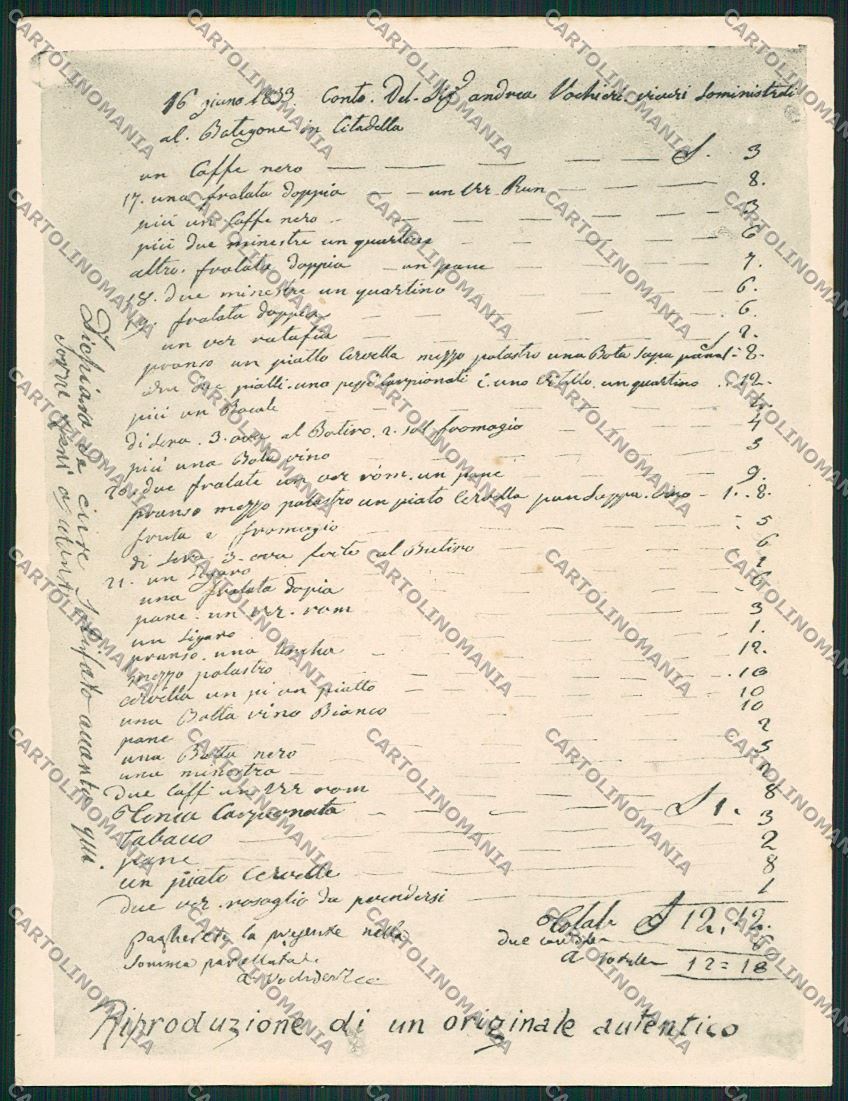 16 giuno 1833. Conto. Del. Sig andrea Vochieri viveri Soministrati
al. Botegone in Citadella
un Caffe nero S. 3
17. una fralata doppia un Ver Run 8.
più un Caffe nero 3
più due minestre un quartino 6
altro. fralata doppia un pane 7.
18. due minestre un quartino 6.
19. fralata doppia 6.
un ver ratafia 2.
pranso un piatto Cervella mezzo polastro una Bota Sapa pane 8.
due piatti uno Carpionati uno un quartino 12.
più un Bocale
di Sera. 3. ova al Botiro. 2. sol fromagio 4
più una Bota vino 3
20. due fralate un ver róm. un pane 9.
pranso mezzo polastro un piato Cervella pan Suppa. vino 1. 8.
fruta e fromagio 5
di Sera 3. ova frite al Butiro 6
21. un Sigaro
una fralata dopia 6
pane. un ver. rom 3
un Sigaro 1.
pranso. una 12.
mezzo polastro 10
cervella un piatto 10
una Botta vino Bianco 10
pane 2
una Botta nero 5
una minestra 2
due Caffi un Ver rom 8
Tenca Carpionata S 1. 3
tabaco 2
pane
un piato Cervelle 8
due ver. rosoglio da prendersi 1
Totale S 12, 12.
pagherete la presente nella due 6
Somma A totale 12=18
A Vochieri
Dichiara sa cire Sodifato quanto qui.
Riproduzione di un originale autentico
CARTOLINOMANIA